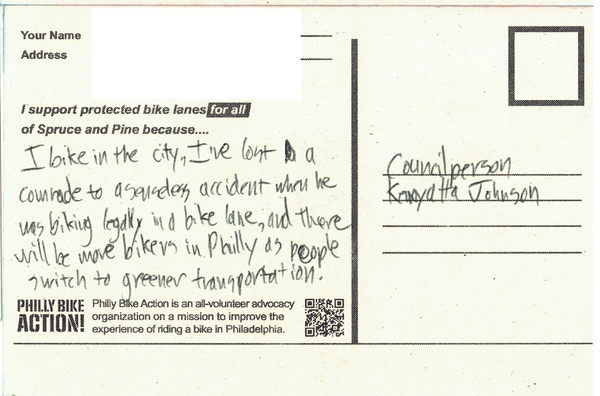 Your Name
Address
I support protected bike lanes for all
of Spruce and Pine because....
I bike in the city, I've lost a
comrade to a senseless accident when he
was biking legally in a bike lane, and there
will be more bikers in Philly as people
switch to greener transportation.
PHILLY BIKE
ACTION!
Philly Bike Action is an all-volunteer advocacy
organization on a mission to improve the
experience of riding a bike in Philadelphia.
Councilperson
Kenyatta Johnson